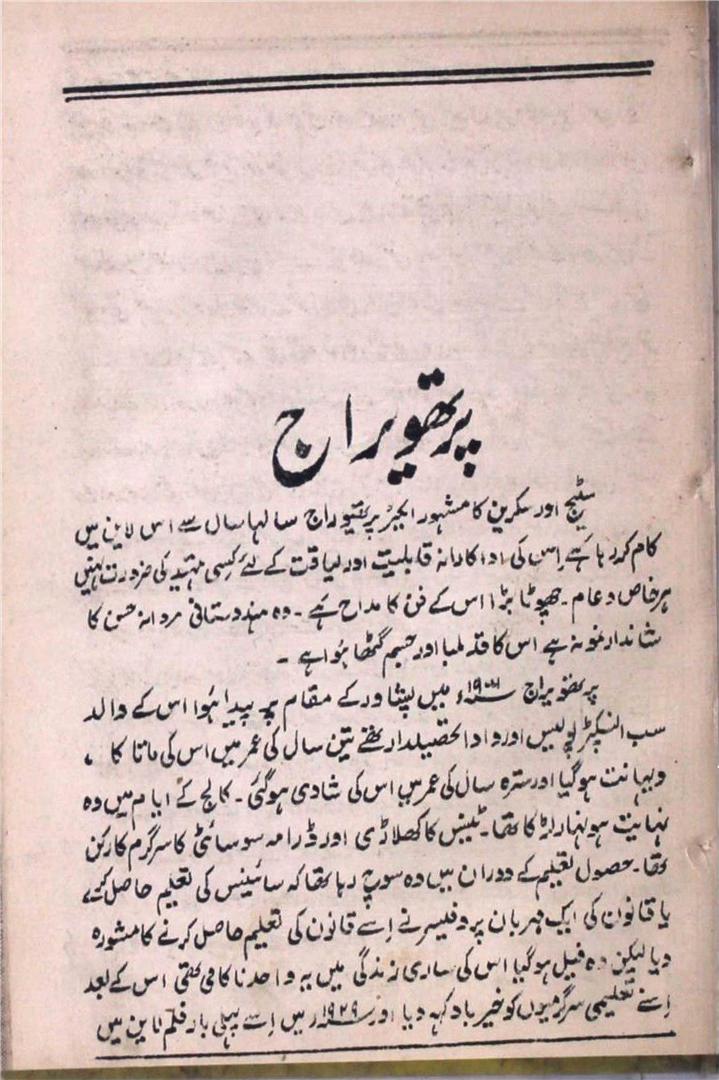 پرتھویراج
سٹیج اور سکرین کا مشہور ایکٹر پرتھیوراج سالہا سال سے اس لاین میں
کام کر رہا ہے اس کی اداکارانہ قابلیت اور لیاقت کے لئے کسی تمہید کی ضرورت نہیں
ہر خاص و عام ۔ چھوٹا بڑا اس کے فن کا مداح ہے ۔ وہ ہندوستانی مردانہ حسن کا
شاندار نمونہ ہے اس کا قد لمبا اور جسم گٹھا ہوا ہے ۔
پرتھویراج میں پشاور کے مقام پر پیدا ہوا اس کے والد
سب انسپکٹر پولیس اور دادا تحصیلدار تھے تین سال کی عمر میں اس کی ماتا کا ،
دیہانت ہو گیا اور سترہ سال کی عمر میں اس کی شادی ہو گئی ۔ کالج کے ایام میں وہ
نہایت ہونہار لڑکا تھا ۔ ٹینس کا کھلاڑی اور ڈرامہ سوسائٹی کا سرگرم کارکن
تھا ۔ حصول تعلیم کے دوران میں وہ سوچ رہا تھا کہ سائینس کی تعلیم حاصل کرے
یا قانون کی ایک مہربان پروفیسر نے اسے قانون کی تعلیم حاصل کرنے کا مشورہ
دیا لیکن وہ فیل ہو گیا اس کی ساری زندگی میں یہ واحد ناکامی تھی اس کے بعد
اسنے تعلیمی سرگرمیوں کو خیر باد کہہ دیا اور ۱۹۲۹ میں اسے پہلی بار فلم لاین میں